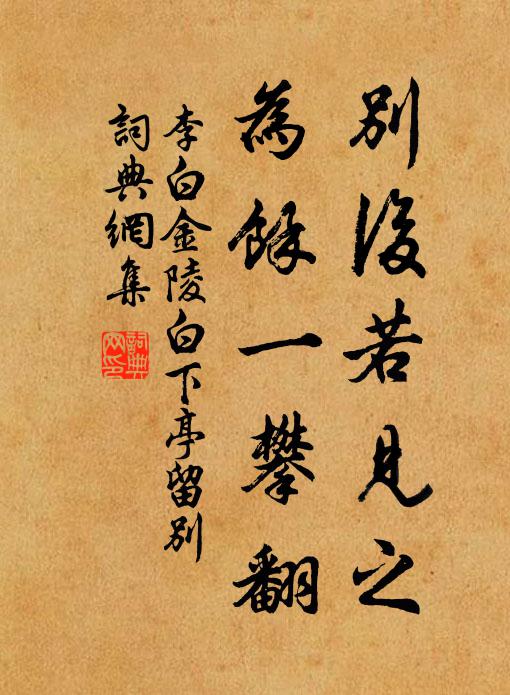 別後若見之
為餘一攀翻
李白金陵白下亭留別
詞典網集
詞典
网印